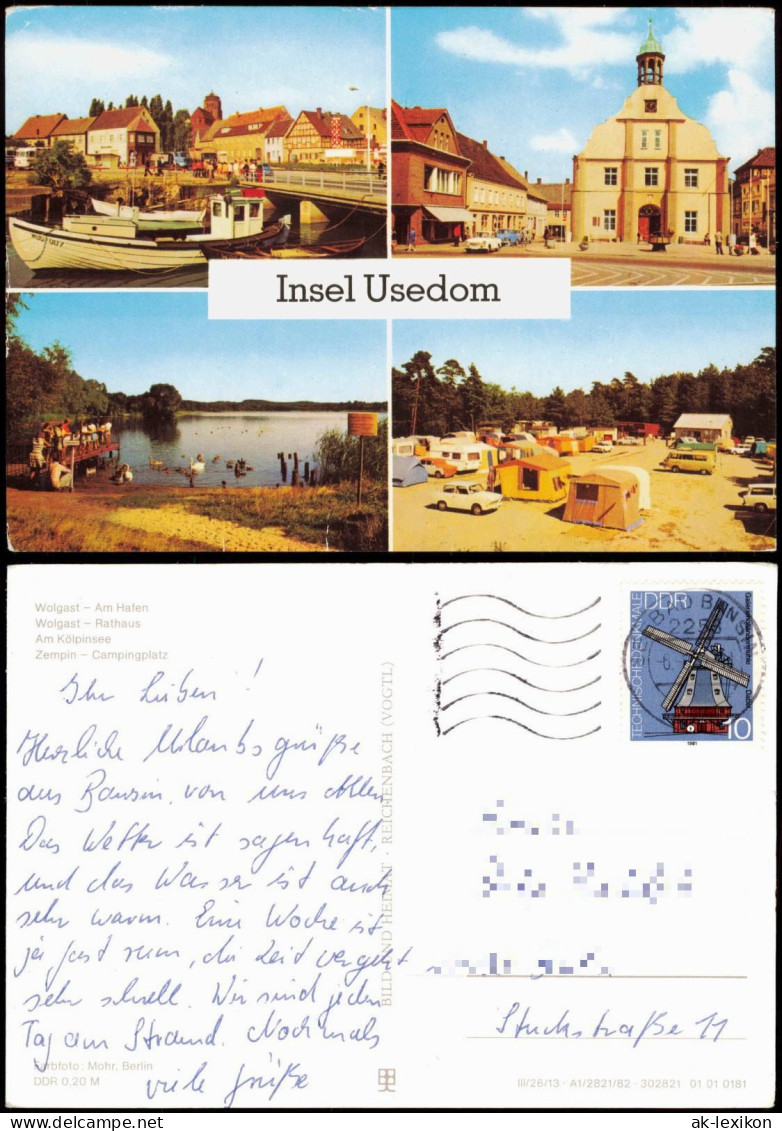 Insel Usedom
Wolgast – Am Hafen
Wolgast – Rathaus
Am Kölpinsee
Zempin – Campingplatz
Ihr Lieben!
Herzliche Urlaubsgrüße
aus Bansin, von uns Allen.
Das Wetter ist sagenhaft,
und das Wasser ist auch
sehr warm. Eine Woche ist
ja fast rum, die Zeit vergeht
sehr schnell. Wir sind jeden
Tag am Strand. Nochmals
viele Grüße
Farbfoto: Mohr, Berlin
DDR 0,20 M
BILD UND HEIMAT · REICHENBACH (VOGTL)
TECHNISCHE DENKMALE
DDR
10
1981
2255
Stuckstraße 11
III/26/13 · A1/2821/82 · 302821 01 01 0181
delcampe.net
ak-lexikon